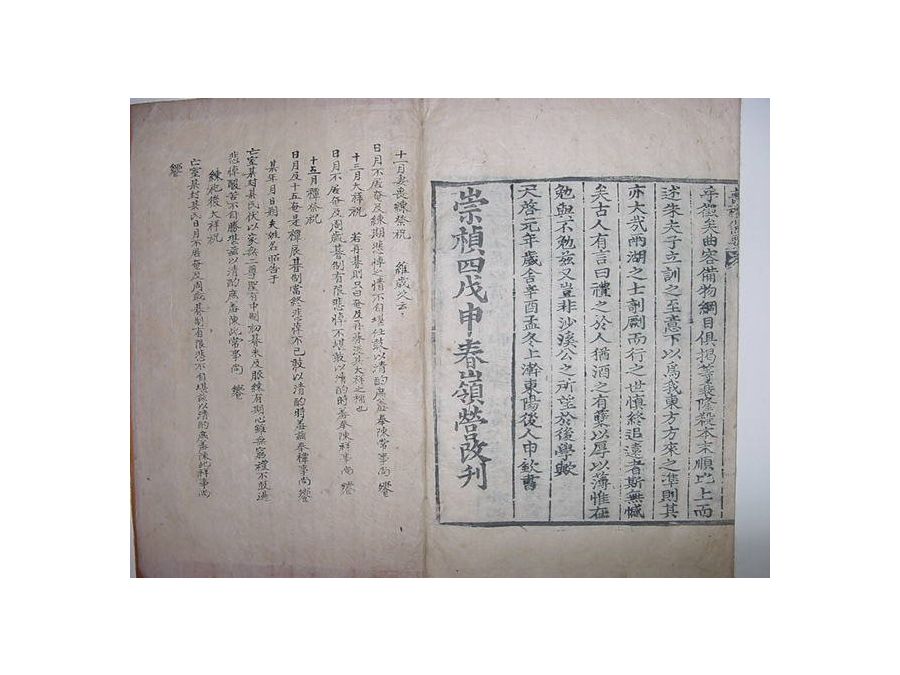 乎徵矣曲容備物綱目俱揭等義條殺本末順比上而
述朱夫子立訓之至意下以爲我東方方來之準則其
亦大哉兩湖之士剞劂而行之世慎終追遠者斯無憾
矣古人有言曰禮之於人猶酒之有蘖以厚以薄惟在
勉與不勉玆又豈非沙溪公之所望於後學歟
天啓元年歲舍辛酉孟冬上澣東陽後人申欽書
崇禎四戊申春嶺營改刊
十一月妻喪練祭祝 維歲次云云
日月不居奄及練期悲悼之情不自堪任玆以清酌庶羞奉陳常事尚 饗
十三月大祥祝 若再朞則只曰奄及再朞
日月不居奄及周歲朞制有限悲悼不堪敢以清酌時羞奉陳祥事尚 饗
十五月禫祭祝
日月及十五奄是禫辰朞制當終悲悼不已敢以清酌時羞論奉禫事尚饗
某年月日朔夫姓名昭告于
亡室某封某氏伏以家無二尊聖有中制初朞未及服練有期心雖無窮禮不敢過
悲悼酸苦不自勝堪玆以清酌庶羞陳此常事尚 饗
練祀後大祥祝
亡室某封某氏日月不居奄及周歲朞制有限悲不自堪玆以清酌庶羞陳此祥事尚
饗